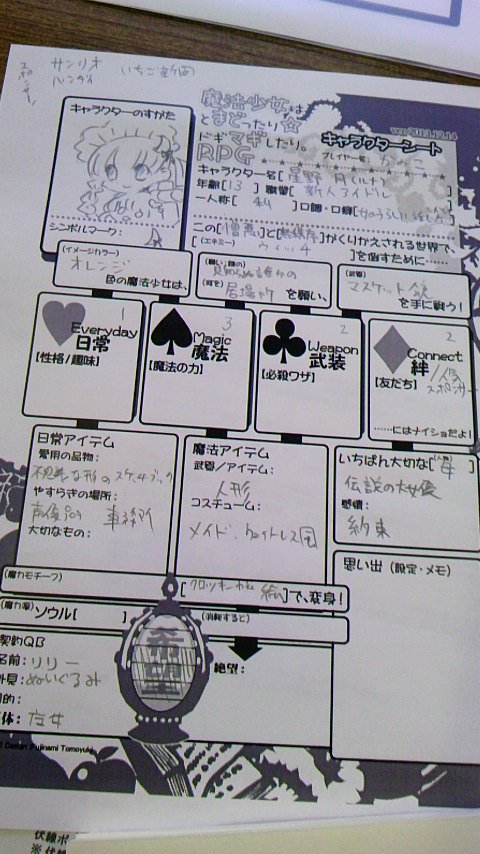 サンリオ
バンダイ
いちご新聞
スポンサー
魔法少女は
とまどったり☆
ドギマギしたり。
RPG
キャラクターシート
ver2013.12.14
プレイヤー名[
キャラクターのすがた
キャラクター名[星野 月(ルナ) ]
年齢[13 ] 職業[ 新人アイドル ]
一人称[ 私 ]口調・口癖[
シンボルマーク:
この[憎悪]と[ ]がくりかえされる世界で、
(エネミー)
[ ウィッチ ]を倒すために……
(イメージカラー)
オレンジ
色の魔法少女は、
(願い:誰の)
(何を)
居場所 を願い、
(武器)
マスケット銃
を手に戦う!
1
Everyday
日常
【性格/趣味】
3
Magic
魔法
【魔法の力】
2
Weapon
武装
【必殺ワザ】
2
Connect
絆
【友だち】
人気
スポンサー
……にはナイショだよ!
日常アイテム
愛用の品物:
不思議な形のスケッチブック
やすらぎの場所:
事務所
大切なもの:
魔法アイテム
武器/アイテム:
人形
コスチューム:
メイド、ウェイトレス風
いちばん大切な(人物)[ 母 ]
伝説の大女優
感情:
約束
思い出(設定・メモ)
(魔力モチーフ)
[ 絵]で、変身!
(魔力源)
ソウル[ ]
(消耗すると)
希望
絶望:
契約QB
名前:リリー
外見:ぬいぐるみ
目的:
正体:
Design Fujinami Tomoyuki